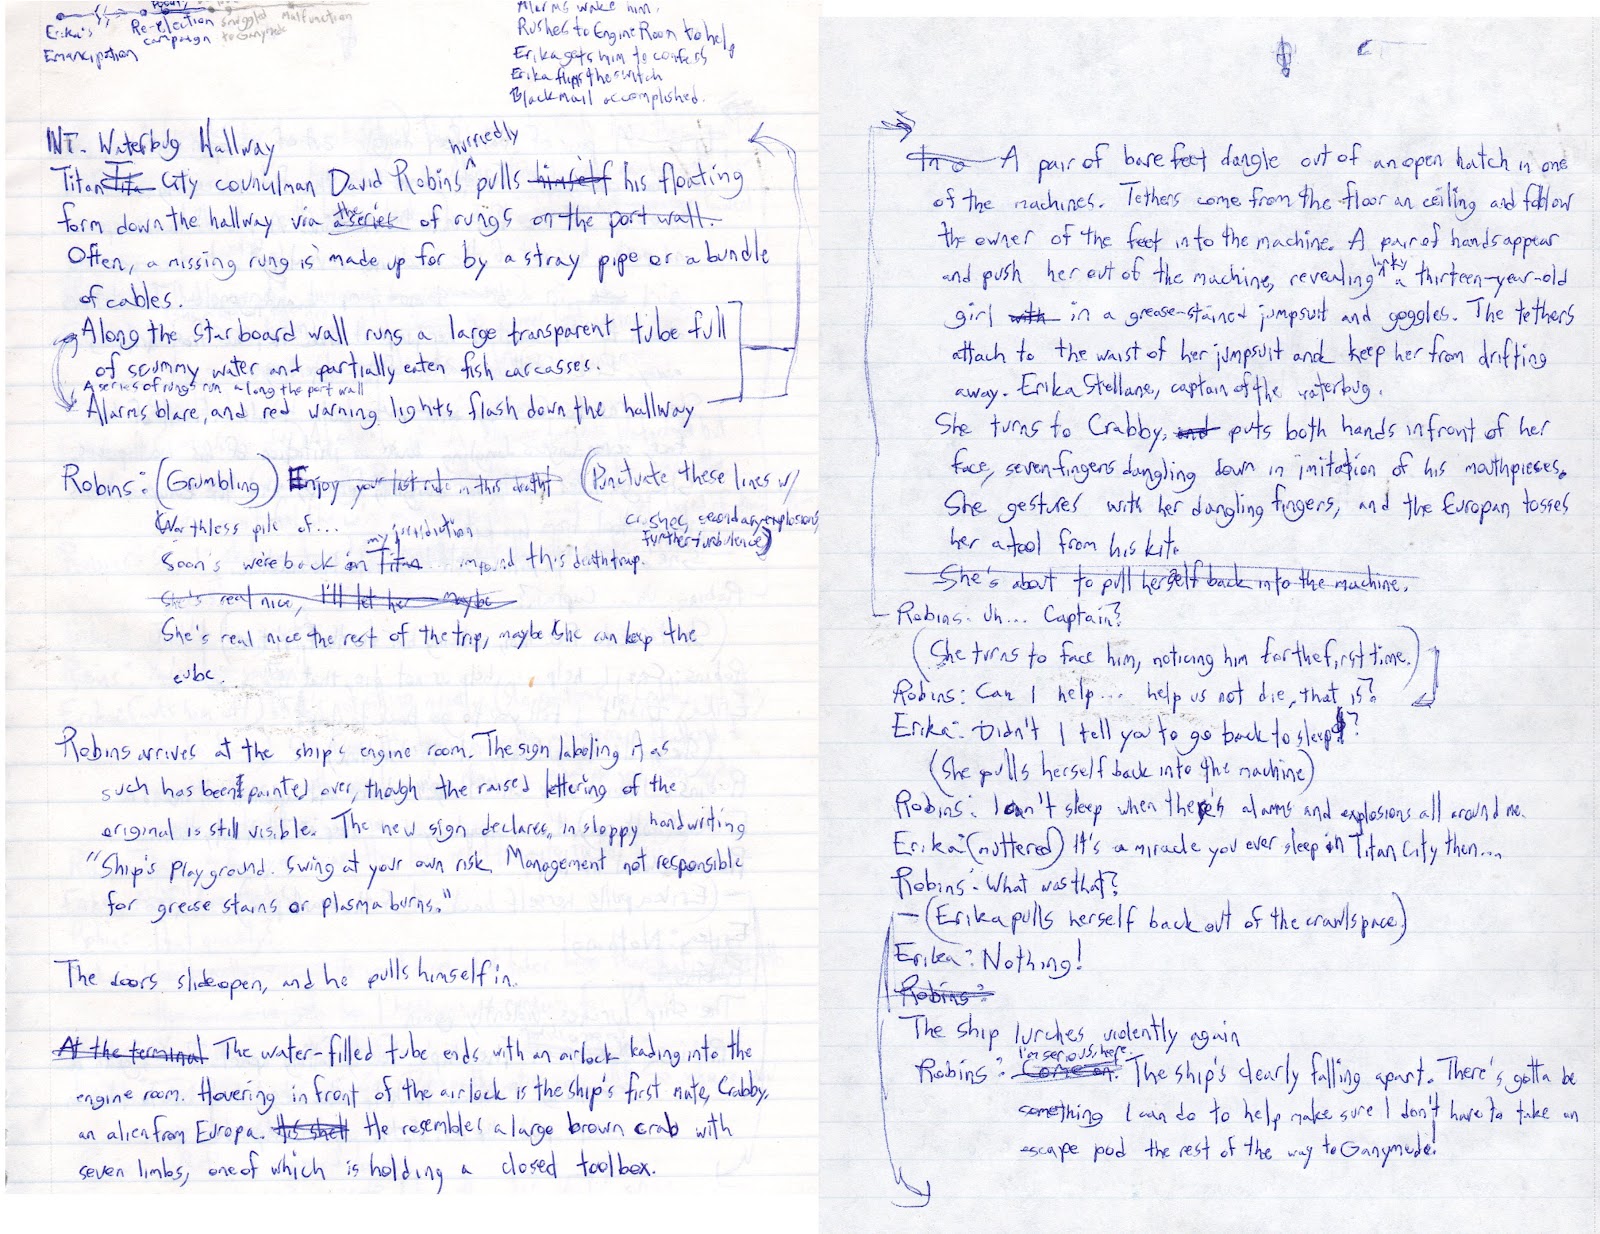 Erika's
Emancipation
Re-election
campaign
smuggled
to Ganymede
Malfunction
Alarms wake him.
Rushes to Engine Room to help
Erika gets him to confess
Erika flips the switch
Blackmail accomplished.
INT. Waterbug Hallway
hurriedly
Titan City councilman David Robins pulls himself his floating
form down the hallway via the a series of rungs on the port wall.
Often, a missing rung is made up for by a stray pipe or a bundle
of cables.
Along the starboard wall runs a large transparent tube full
of scummy water and partially eaten fish carcasses.
A series of rungs run along the port wall
Alarms blare, and red warning lights flash down the hallway
Robins: (Grumbling) Enjoy your last ride in this deatht (Punctuate these lines w/
crashes, secondary explosions,
further turbulence)
Worthless pile of...
my jurisdiction
Soon's we're back in Titan impound this deathtrap.
She's real nice, I'll let her maybe
She's real nice the rest of the trip, maybe she can keep the
cube.
Robins arrives at the ship's engine room. The sign labeling it as
such has been painted over, though the raised lettering of the
original is still visible. The new sign declares, in sloppy handwriting
"Ship's playground. Swing at your own risk. Management not responsible
for grease stains or plasma burns."
The doors slide open, and he pulls himself in.
At the terminal The water-filled tube ends with an airlock leading into the
engine room. Hovering in front of the airlock is the ship's first mate, Crabby,
an alien from Europa. His shell He resembles a large brown crab with
seven limbs, one of which is holding a closed toolbox.
In a A pair of bare feet dangle out of an open hatch in one
of the machines. Tethers come from the floor an ceiling and follow
the owner of the feet into the machine. A pair of hands appear
lanky
and push her out of the machine, revealing a thirteen-year-old
girl with in a grease-stained jumpsuit and goggles. The tethers
attach to the waist of her jumpsuit and keep her from drifting
away. Erika Stellane, captain of the waterbug.
She turns to Crabby, and puts both hands in front of her
face, seven fingers dangling down in imitation of his mouthpieces.
She gestures with her dangling fingers, and the Europan tosses
her a tool from his kit.
She's about to pull herself back into the machine.
Robins: Uh... Captain?
(She turns to face him, noticing him for the first time.)
Robins: Can I help... help us not die, that is?
Erika: Didn't I tell you to go back to sleep?
(She pulls herself back into the machine)
Robins: I can't sleep when there's alarms and explosions all around me.
Erika: (muttered) It's a miracle you ever sleep in Titan City then...
Robins: What was that?
(Erika pulls herself back out of the crawlspace)
Erika: Nothing!
Robins:
The ship lurches violently again
I'm serious, here.
Robins: Come on. The ship's clearly falling apart. There's gotta be
something I can do to help make sure I don't have to take an
escape pod the rest of the way to Ganymede!